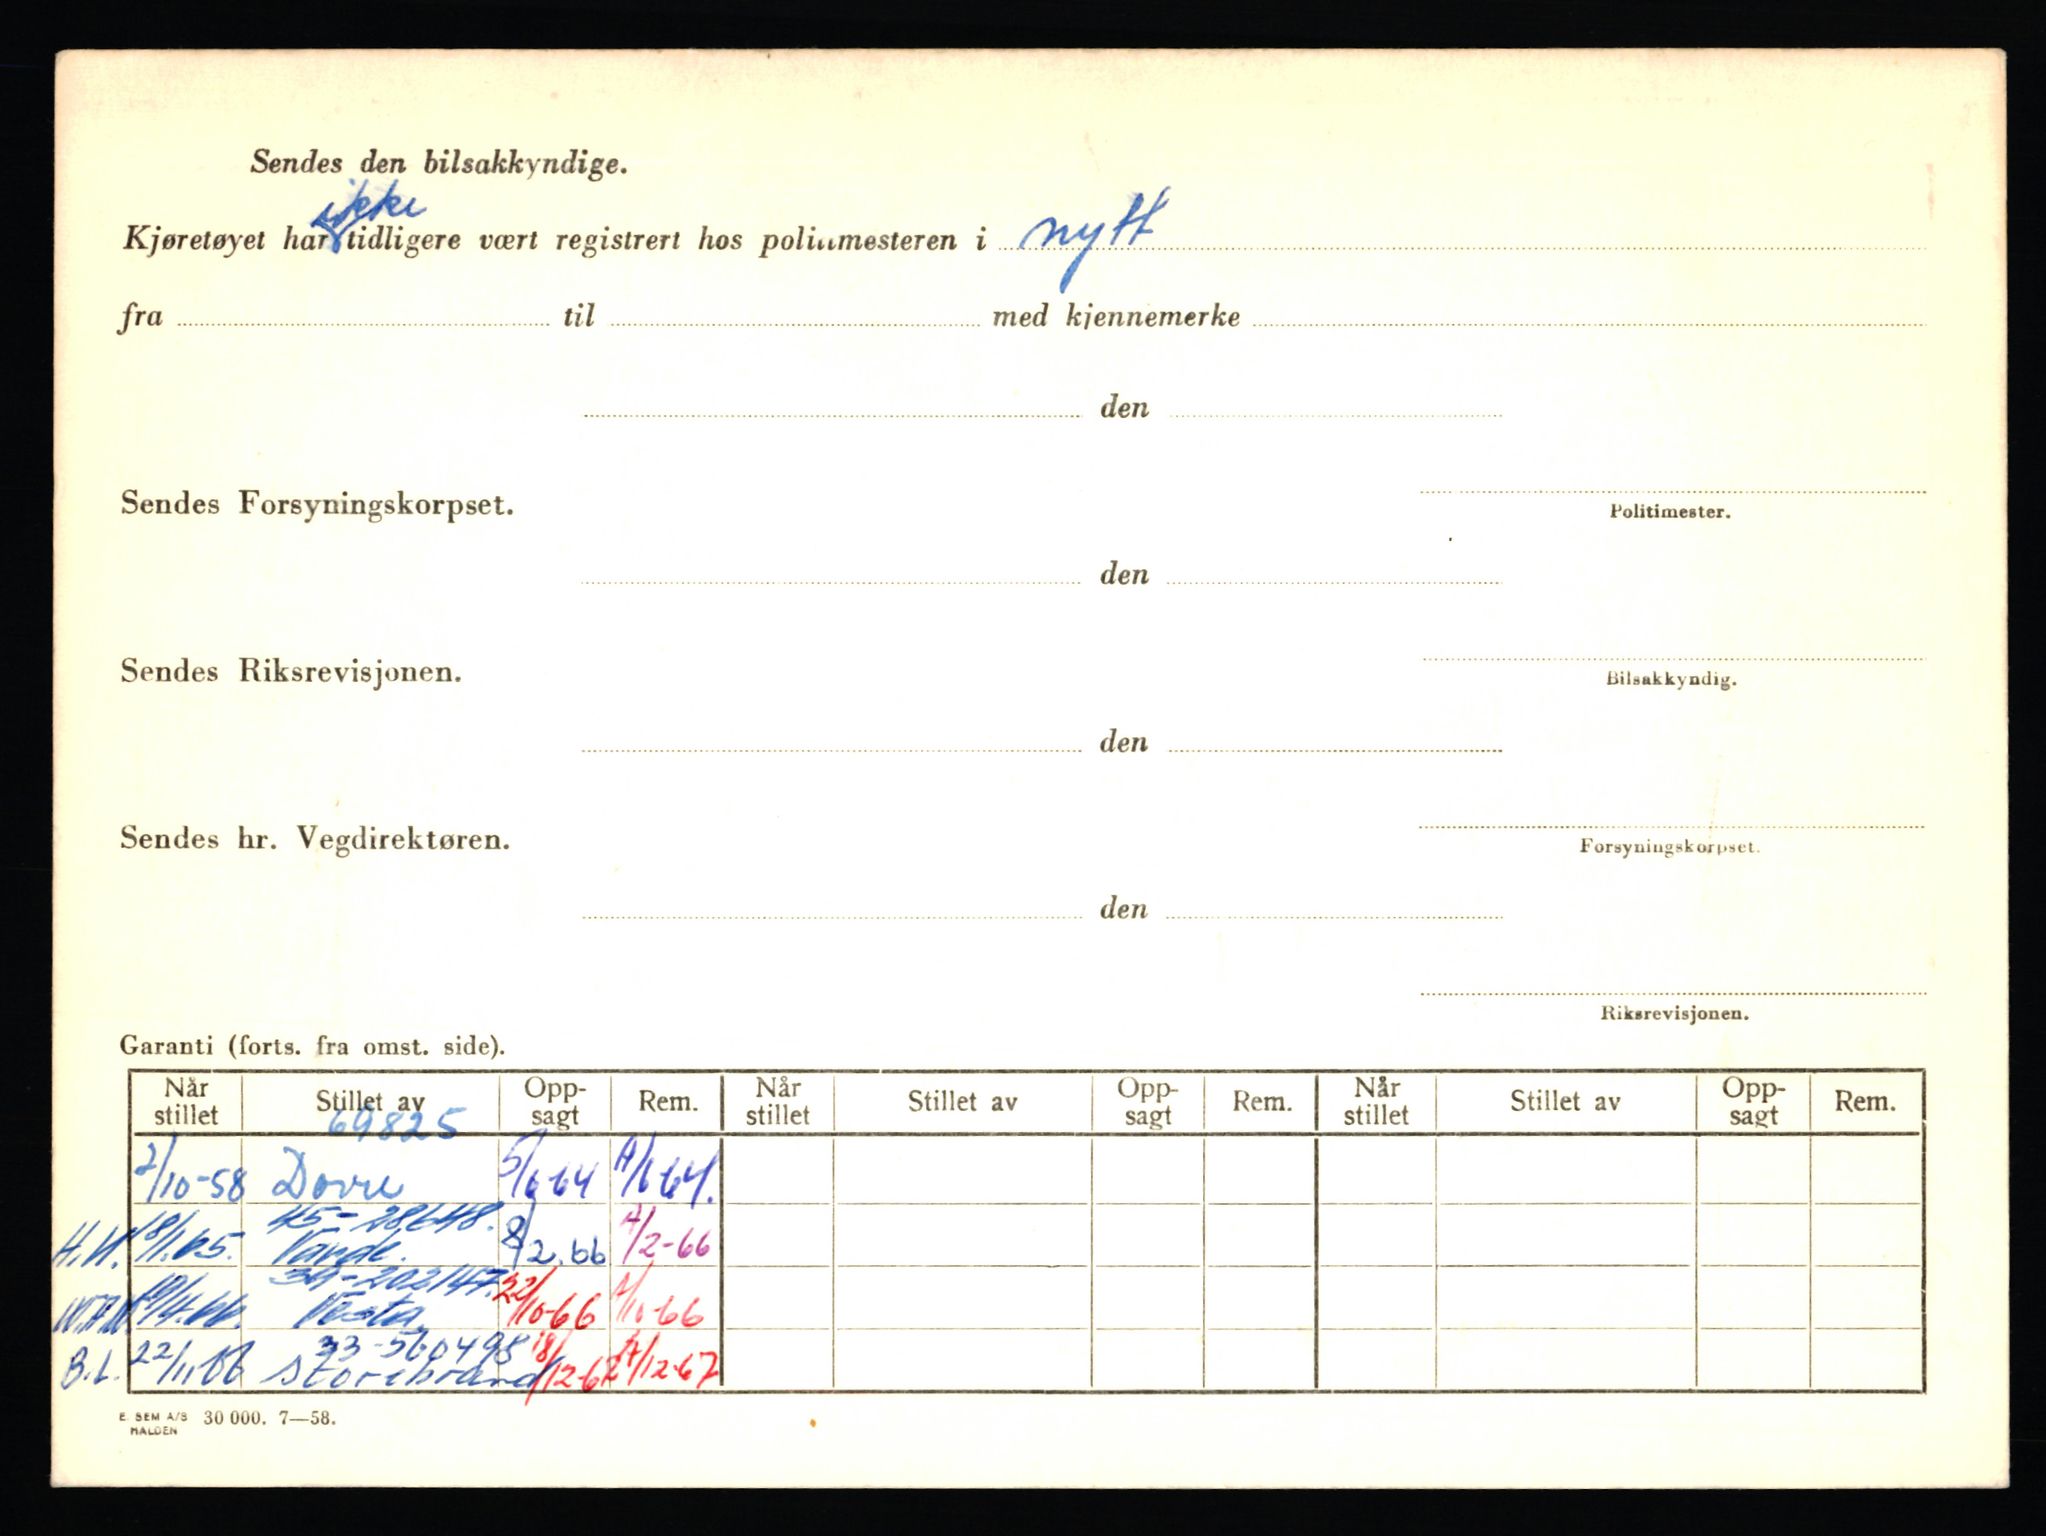 Sendes den bilsakkyndige.
ikke
Kjøretøyet har tidligere vært registrert hos politimesteren i nytt
fra til med kjennemerke
den
Sendes Forsyningskorpset.
Politimester.
den
Sendes Riksrevisjonen.
Bilsakkyndig.
den
Sendes hr. Vegdirektøren.
Forsyningskorpset.
den
Riksrevisjonen.
Garanti (forts. fra omst. side).
Når stillet Stillet av Opp-sagt Rem. Når stillet Stillet av Opp-sagt Rem. Når stillet Stillet av Opp-sagt Rem.
69825
2/10-58 Dovre 5/6-64 A/6-64.
45-28648.
18/1.65. 8/2.66 A/2-66
34-202147.
Vesta 22/10-66 A/10-66
33-560498
B.L. 22/11.66 Storebrand 18/12-67 A/12-67
E. SEM A/S 30 000. 7—58.
HALDEN